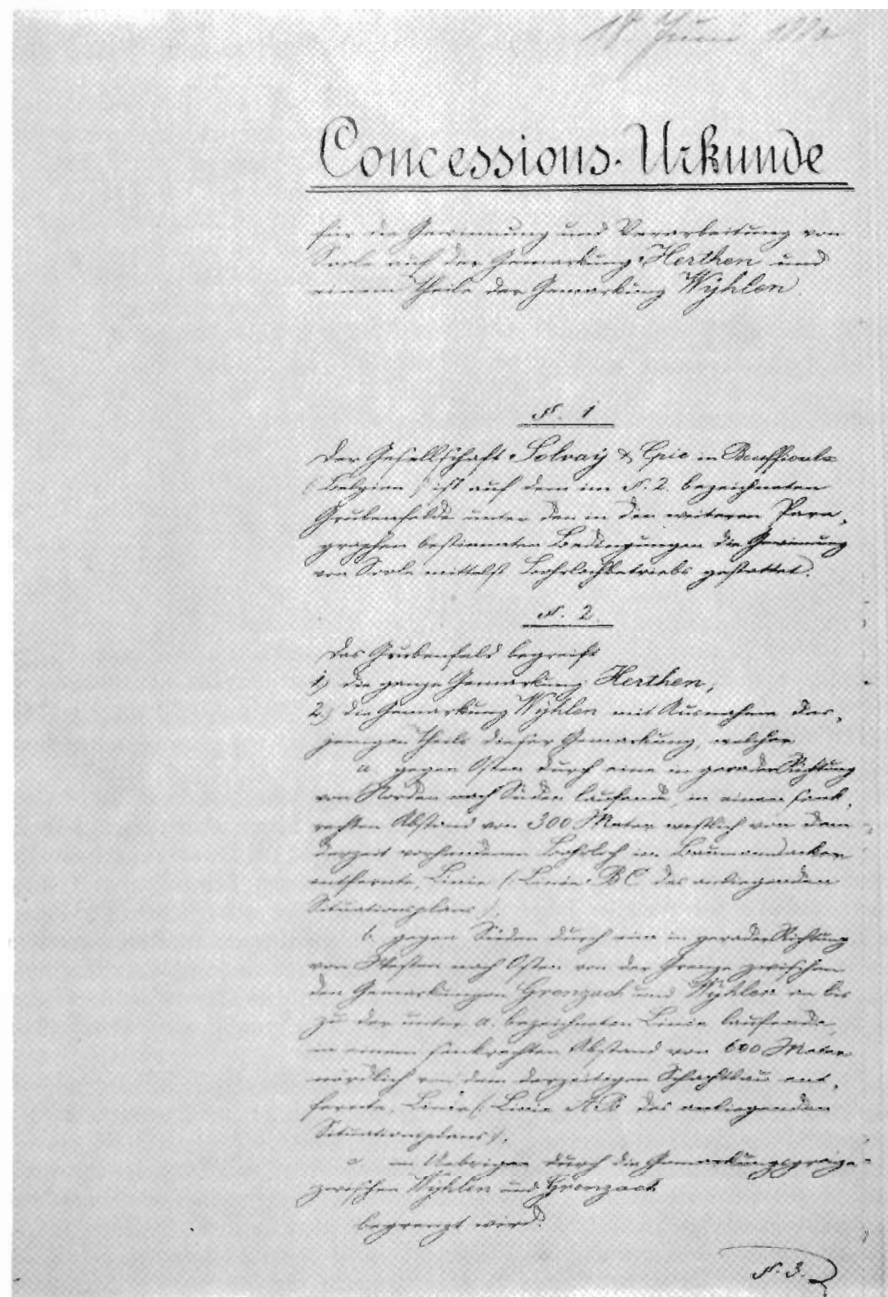 18. Juni
Concessions-Urkunde
für die Gewinnung und Verarbeitung von
Soole auf der Gemarkung Herthen und
einem Theile der Gemarkung Wyhlen.
§. 1
Der Gesellschaft Solvay & Cpie in
(Belgien) ist auf dem im §. 2. bezeichneten
Grubenfelde unter den in den weiteren Para-
graphen bestimmten Bedingungen die Gewinnung
von Soole mittelst Bohrlochbetriebs gestattet.
§. 2
Das Grubenfeld begreift
1) die ganze Gemarkung Herthen,
2.) die Gemarkung Wyhlen mit Ausnahme des-
jenigen Theils dieser Gemarkung, welcher
a. gegen Osten durch eine in gerader Richtung
von Norden nach Süden laufende, in einem senk-
rechten Abstand von 300 Meter westlich von dem
derzeit vorhandenen Bohrloch im
entfernte, Linie (: Linie B C des anliegenden
Situationsplans :),
b. gegen Süden durch eine in gerader Richtung
von Westen nach Osten von der Grenze zwischen
den Gemarkungen Grenzach und Wyhlen an bis
zu der unter a. bezeichneten Linie laufende,
in einem senkrechten Abstand von 600 Meter
nördlich von dem derzeitigen Schachtbau ent-
fernte, Linie (: Linie A.B des anliegenden
Situationsplans :),
c. im Uebrigen durch die Gemarkungsgrenze
zwischen Wyhlen und Grenzach
begrenzt wird.
§. 3.